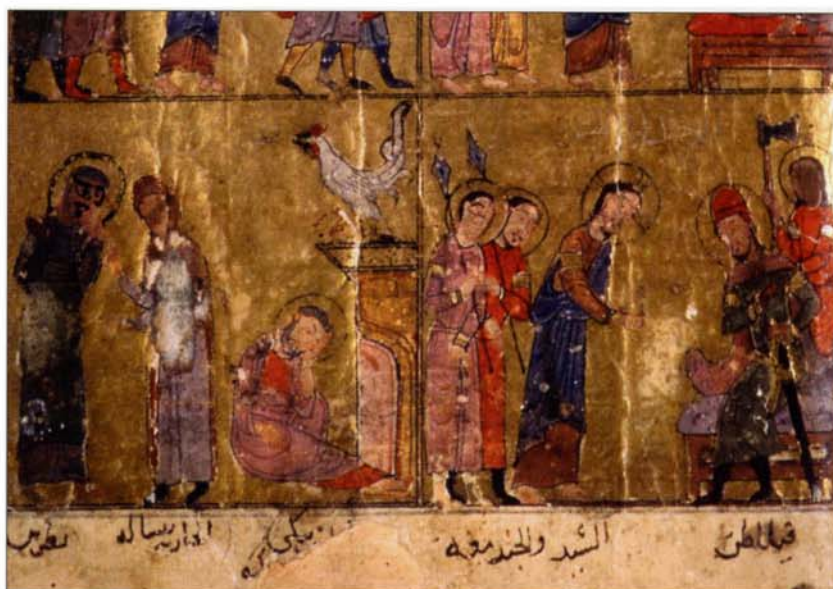 فيلاطس السيد والجند معه يبكي الجارية تساله بطرس